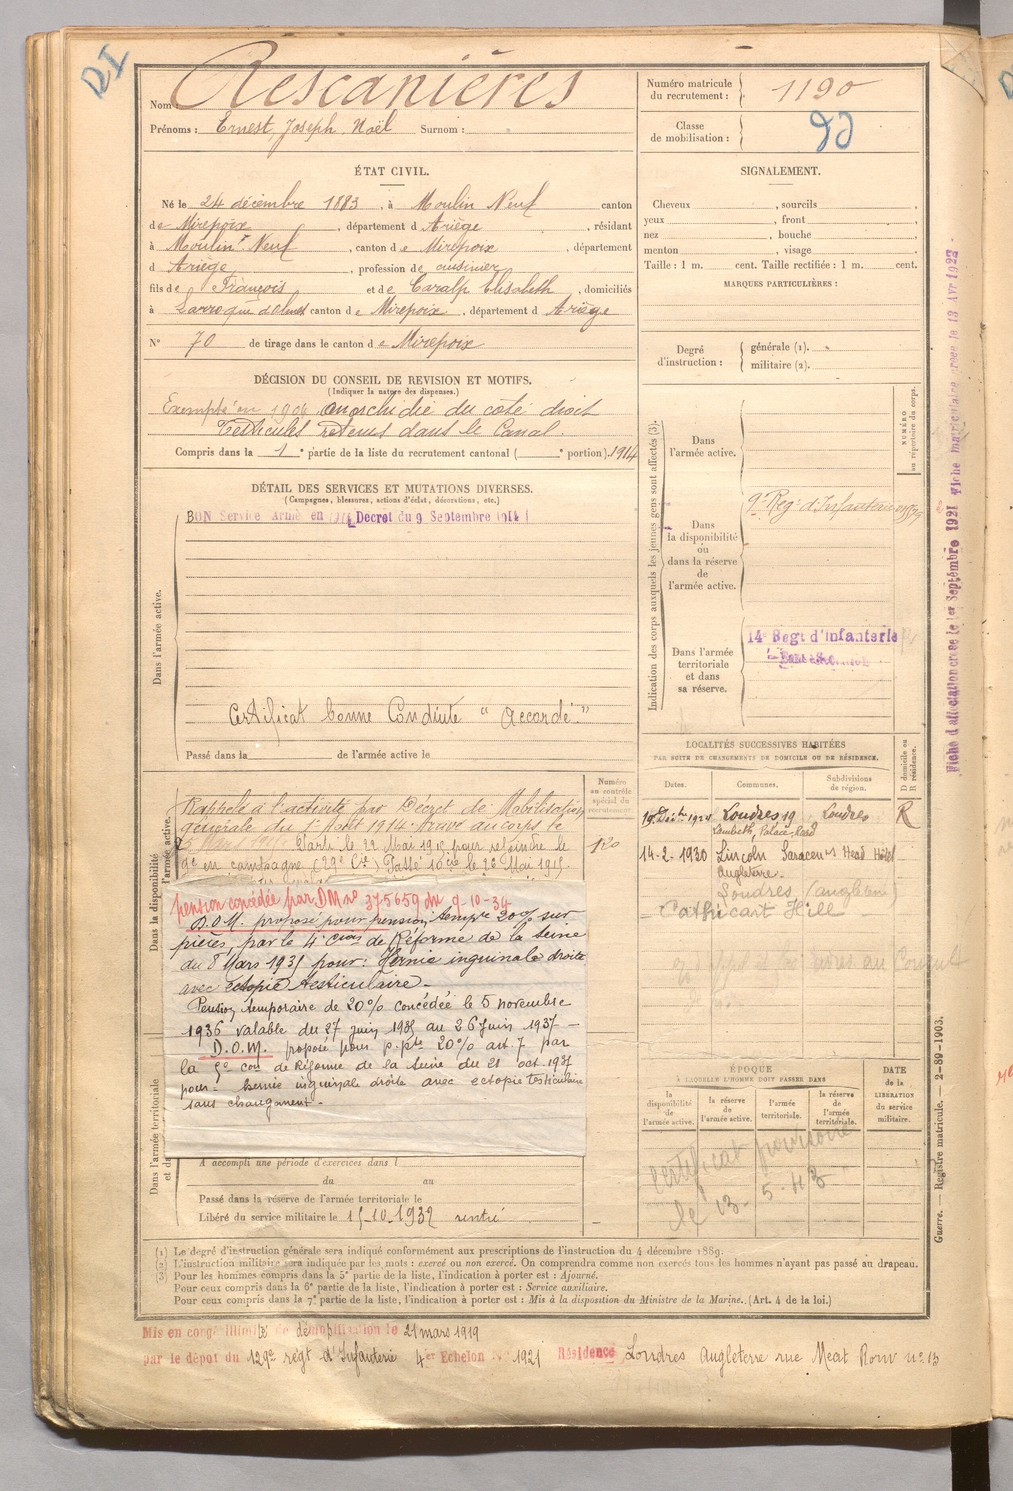 DI
Nom : Rescanières
Prénoms : Ernest, Joseph, Noël Surnom :
Numéro matricule du recrutement : 1190
Classe de mobilisation :
ÉTAT CIVIL.
Né le 24 décembre 1883, à Moulin Neuf canton
de Mirepoix, département d'Ariège, résidant
à Moulin Neuf, canton de Mirepoix, département
d Ariège, profession de cuisinier
fils de François et de Caralp Elisabeth, domiciliés
à Larroque d'olmes canton de Mirepoix, département d Ariège
N° 70 de tirage dans le canton de Mirepoix
SIGNALEMENT.
Cheveux , sourcils ,
yeux , front ,
nez , bouche ,
menton , visage .
Taille : 1 m. cent. Taille rectifiée : 1 m. cent.
MARQUES PARTICULIÈRES :
Degré d'instruction : générale (1).
militaire (2).
DÉCISION DU CONSEIL DE REVISION ET MOTIFS.
(Indiquer la nature des dispenses.)
Exempté en 1904 anorchidie du côté droit
Testicules retenus dans le Canal.
Compris dans la 1e partie de la liste du recrutement cantonal ( e portion). 1914
DÉTAIL DES SERVICES ET MUTATIONS DIVERSES.
(Campagnes, blessures, actions d'éclat, décorations, etc.)
BON Service Armé en 1914 Decret du 9 Septembre 1914
Dans l'armée active.
Certificat bonne Conduite "Accordé"
Passé dans la de l'armée active le
Indication des corps auxquels les jeunes gens sont affectés (3).
NUMÉRO au répertoire du corps.
Dans l'armée active.
9e Reg. d'Infanterie
Dans la disponibilité ou dans la réserve de l'armée active.
14e Regt d'Infanterie
Dans l'armée territoriale et dans sa réserve.
Fiche d'affectation créée le 1er Septembre 1921 Fiche matriculaire créée le 13 Avr 1922
LOCALITÉS SUCCESSIVES HABITÉES
PAR SUITE DE CHANGEMENTS DE DOMICILE OU DE RÉSIDENCE.
Dates. Communes. Subdivisions de région. D domicile ou R résidence.
1924 Londres 19 Londres R
Lambeth, Palace, Road
14-2-1930 Lincoln Saracen's Head Hôtel
Angleterre
Londres (angleterre)
Cathcart Hill
Numéro au contrôle spécial du recrutement
Dans la disponibilité
l'armée active.
Rappelé à l'activité par Décret de Mobilisation
générale du 1er Août 1914. Arrivé au corps le
Parti le 22 Mai 1915 pour rejoindre le
9e en campagne (29e Cie) Passé
pension concédée par DM no 375659 du 9-10-34
D.O.M. proposé pour pension tempre 20% sur
pièces, par le 4e Cion de Réforme de la Seine
du 8 Mars 1931 pour : Hernie inguinale droite
avec ectopie testiculaire.
Pension temporaire de 20% concédée le 5 novembre
1936 valable du 27 juin 1935 au 26 juin 1937 –
D.O.M. proposé pour p.pte 20% art. 7 par
la 5e con de Réforme de la Seine du 21 oct. 1937
pour : hernie inguinale droite avec ectopie testiculaire
sans changement.
Dans l'armée territoriale
A accompli une période d'exercices dans l
du au
Passé dans la réserve de l'armée territoriale le
Libéré du service militaire le 15-10-1932 rentré
ÉPOQUE
À LAQUELLE L'HOMME DOIT PASSER DANS
la disponibilité de l'armée active. la réserve de l'armée active. l'armée territoriale. la réserve de l'armée territoriale.
DATE de la LIBÉRATION du service militaire.
certificat
le 13-5-43
(1) Le degré d'instruction générale sera indiqué conformément aux prescriptions de l'instruction du 4 décembre 1889.
(2) L'instruction militaire sera indiquée par les mots : exercé ou non exercé. On comprendra comme non exercés tous les hommes n'ayant pas passé au drapeau.
(3) Pour les hommes compris dans la 5e partie de la liste, l'indication à porter est : Ajourné.
Pour ceux compris dans la 6e partie de la liste, l'indication à porter est : Service auxiliaire.
Pour ceux compris dans la 7e partie de la liste, l'indication à porter est : Mis à la disposition du Ministre de la Marine. (Art. 4 de la loi.)
Guerre. — Registre matricule. — 2-89-1903.
Mis en congé illimité de démobilisation le 21 mars 1919
par le dépot du 129e régt d'Infanterie 4e Echelon N° 1921 Résidence Londres Angleterre rue Meat Row n° 13